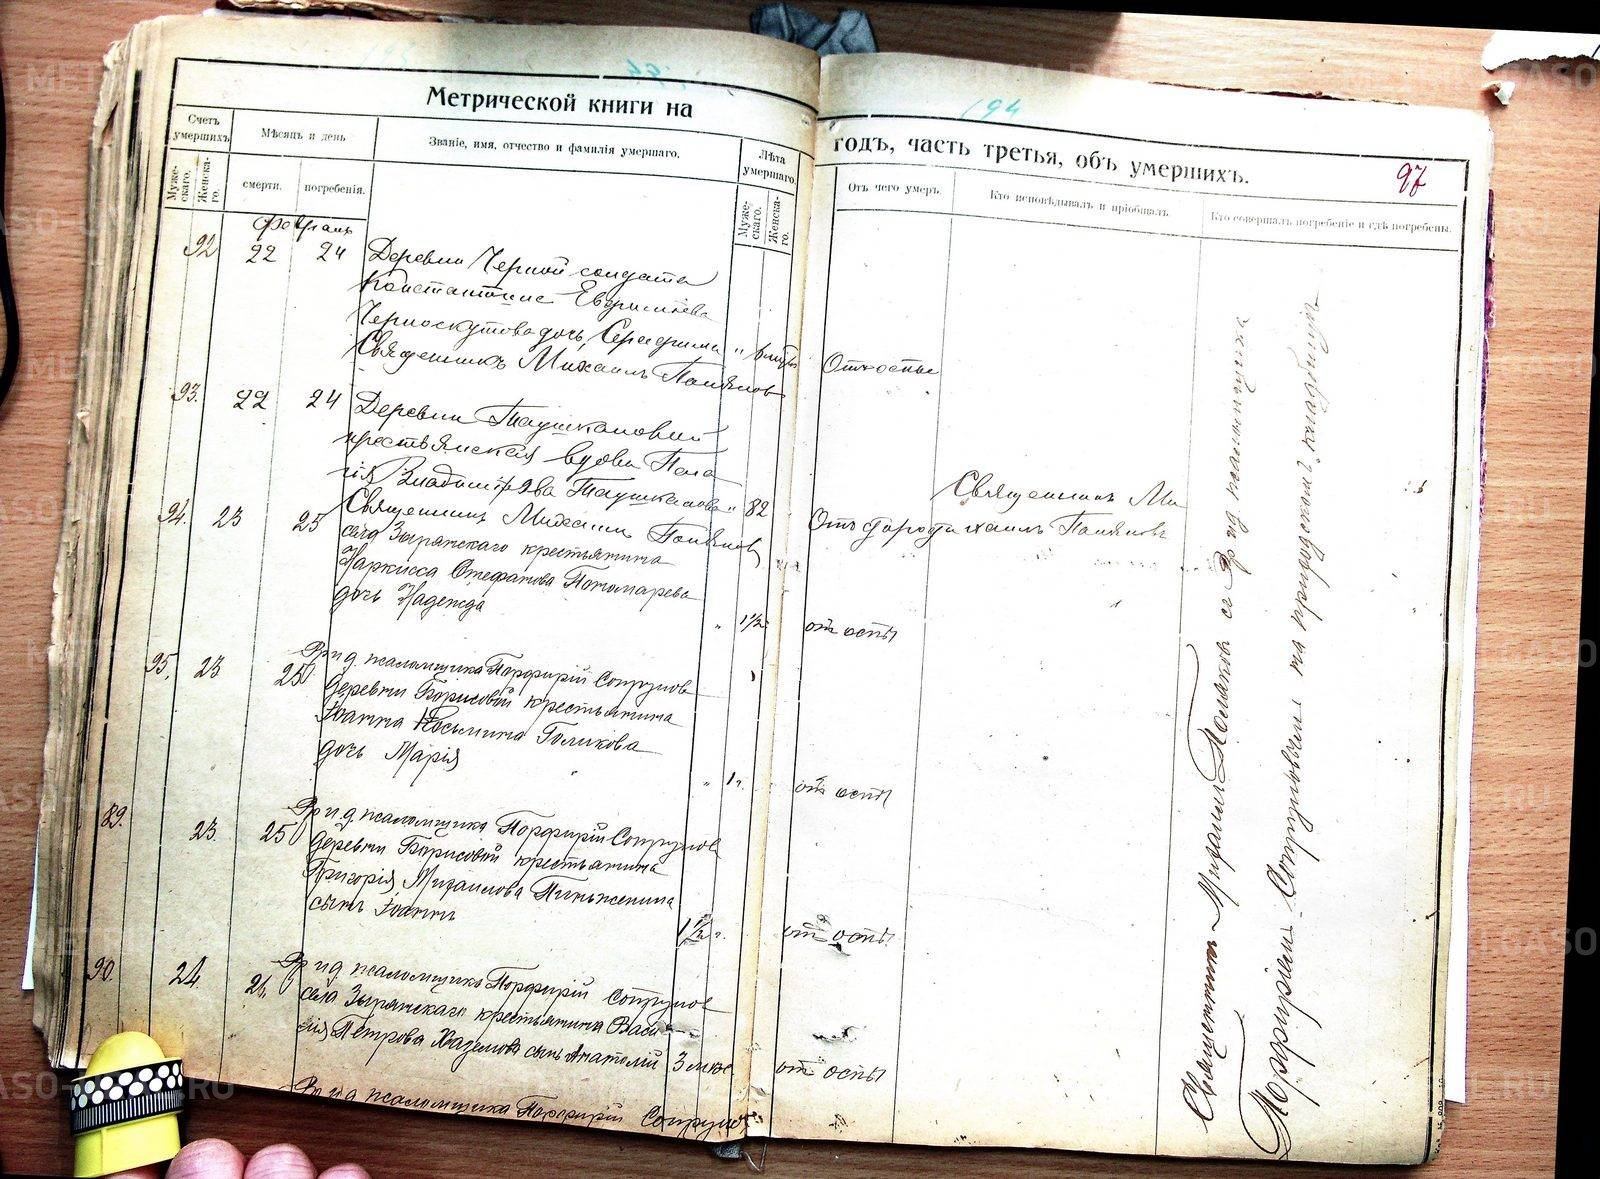 194
Метрической книги на
годъ, часть третья, объ умершихъ.
97
Счетъ умершихъ
Мѣсяцъ и день
Званіе, имя, отчество и фамилія умершаго.
Лѣта умершаго.
Отъ чего умеръ.
Кто исповѣдывалъ и пріобщалъ.
Кто совершалъ погребеніе и гдѣ погребены.
Муже-скаго.
Женска-го.
смерти.
погребенія.
Муже-скаго.
Женска-го.
92 22 24 Деревни Черной солдата
Константина
Черноскутова дочь Серафима "
Священникъ Михаилъ Поляковъ
93. 22 24 Деревни Таушкановой
крестьянская вдова Пела
гія Владимірова Таушканова " 82
Священникъ Ми
хаилъ Поляковъ
Священникъ Михаилъ Поляковъ
94. 23 25 села Зырянскаго крестьянина
Наркисса Стефанова Пономарева
дочь Надежда " 1½ отъ оспы
Вр и д. псаломщика Порфирій Сопрунов
95. 23 25 деревни Борисовой крестьянина
Іоанна Косьмина Голикова
дочь Марія " 1 г. отъ оспы
Вр и д. псаломщика Порфирій Сопрунов
89. 23. 25 деревни Борисовой крестьянина
Григорія Михаилова Пиньженина
сынъ Іоаннъ 1½ г. отъ оспы
Вр и д. псаломщика Порфирій Сопрунов
90. 24. 26. села Зырянскаго крестьянина Васи
лія Петрова сынъ Анатолій 3 отъ оспы
Вр и д псаломщика Порфирій Сопрунов
Священникъ Михаилъ Поляковъ съ Вр и д псаломщика
Порфиріемъ Сопруновымъ на приходскомъ кладбищѣ